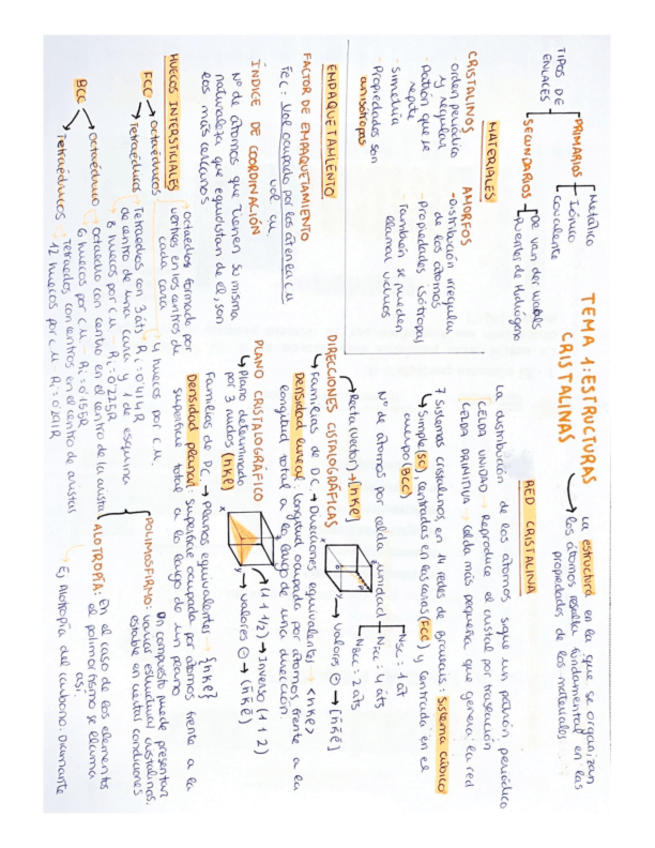 TEMA 1: ESTRUCTURAS
CRISTALINAS
La estructura en la que se organizan
los átomos resulta fundamental en las
propiedades de los materiales.
TIPOS DE
ENLACES
PRIMARIOS
Metálico
Iónico
Covalente
SECUNDARIOS
De van der Waals
Puentes de Hidrógeno
MATERIALES
CRISTALINOS
- orden periódico
y regular
- Patrón que se
repite
- Simetría
- Propiedades son
anisótropas
AMORFOS
- Distribución irregular
de los átomos
- Propiedades isótropas
También se pueden
llamar vítreos
RED CRISTALINA
La distribución de los átomos sigue un patrón periódico
CELDA UNIDAD → Reproduce el cristal por traslación
CELDA PRIMITIVA → celda más pequeña que genera la red
7 sistemas cristalinos, en 14 redes de Bravais: Sistema cúbico
↳ Simple (SC), centradas en las caras (FCC) y centrada en el
cuerpo (BCC)
Nº de átomos por celda unidad
Nsc = 1 át
Nfcc = 4 áts
Nbcc = 2 áts
EMPAQUETAMIENTO
FACTOR DE EMPAQUETAMIENTO
Fec: Vol ocupado por los át en la cu
vol. cu.
ÍNDICE DE COORDINACIÓN
Nº de átomos que tienen su misma
naturaleza que equidistan de él, son
los más cercanos
HUECOS INTERSTICIALES
FCC
Octaédricos → octaedros formado por
vértices en los centros de
cada cara
4 huecos por c.u.
Ri = 0'414R
Tetraédricos → Tetraedros con 3 áts
de centro de una cara y 1 de esquina
8 huecos por c.u - Ri = 0'225R
BCC
Octaédrico → octaedro con centro en el centro de la arista
6 huecos por c.u - Ri = 0'155R
Tetraédricos → Tetraedros con centros en el centro de aristas
12 huecos por c.u - Ri = 0'291R
DIRECCIONES CISTALOGRÁFICAS
↳ Recta (vector) → [hkl]
↳ Familias de DC → Direcciones equivalentes → <hkl>
→ valores ⊖ → [h̄k̄l̄]
Densidad lineal: longitud ocupada por átomos frente a la
longitud total a lo largo de una dirección.
PLANO CRISTALOGRÁFICO
↳ Plano determinado
por 3 nudos (hkl)
→ (1 1 1/2) → Inverso (1 1 2)
→ valores ⊖ → (h̄k̄l̄)
Familias de P.C. → Planos equivalentes → {hkl}
Densidad planar: superficie ocupada por átomos frente a la
superficie total a lo largo de un plano
POLIMOSFIRMO: Un compuesto puede presentar
varias estructuras cristalinas,
estable en ciertas condiciones
ALOTROPÍA: En el caso de los elementos
el polimorfismo se llama
así.
Ej Alotropía del carbono: Diamante